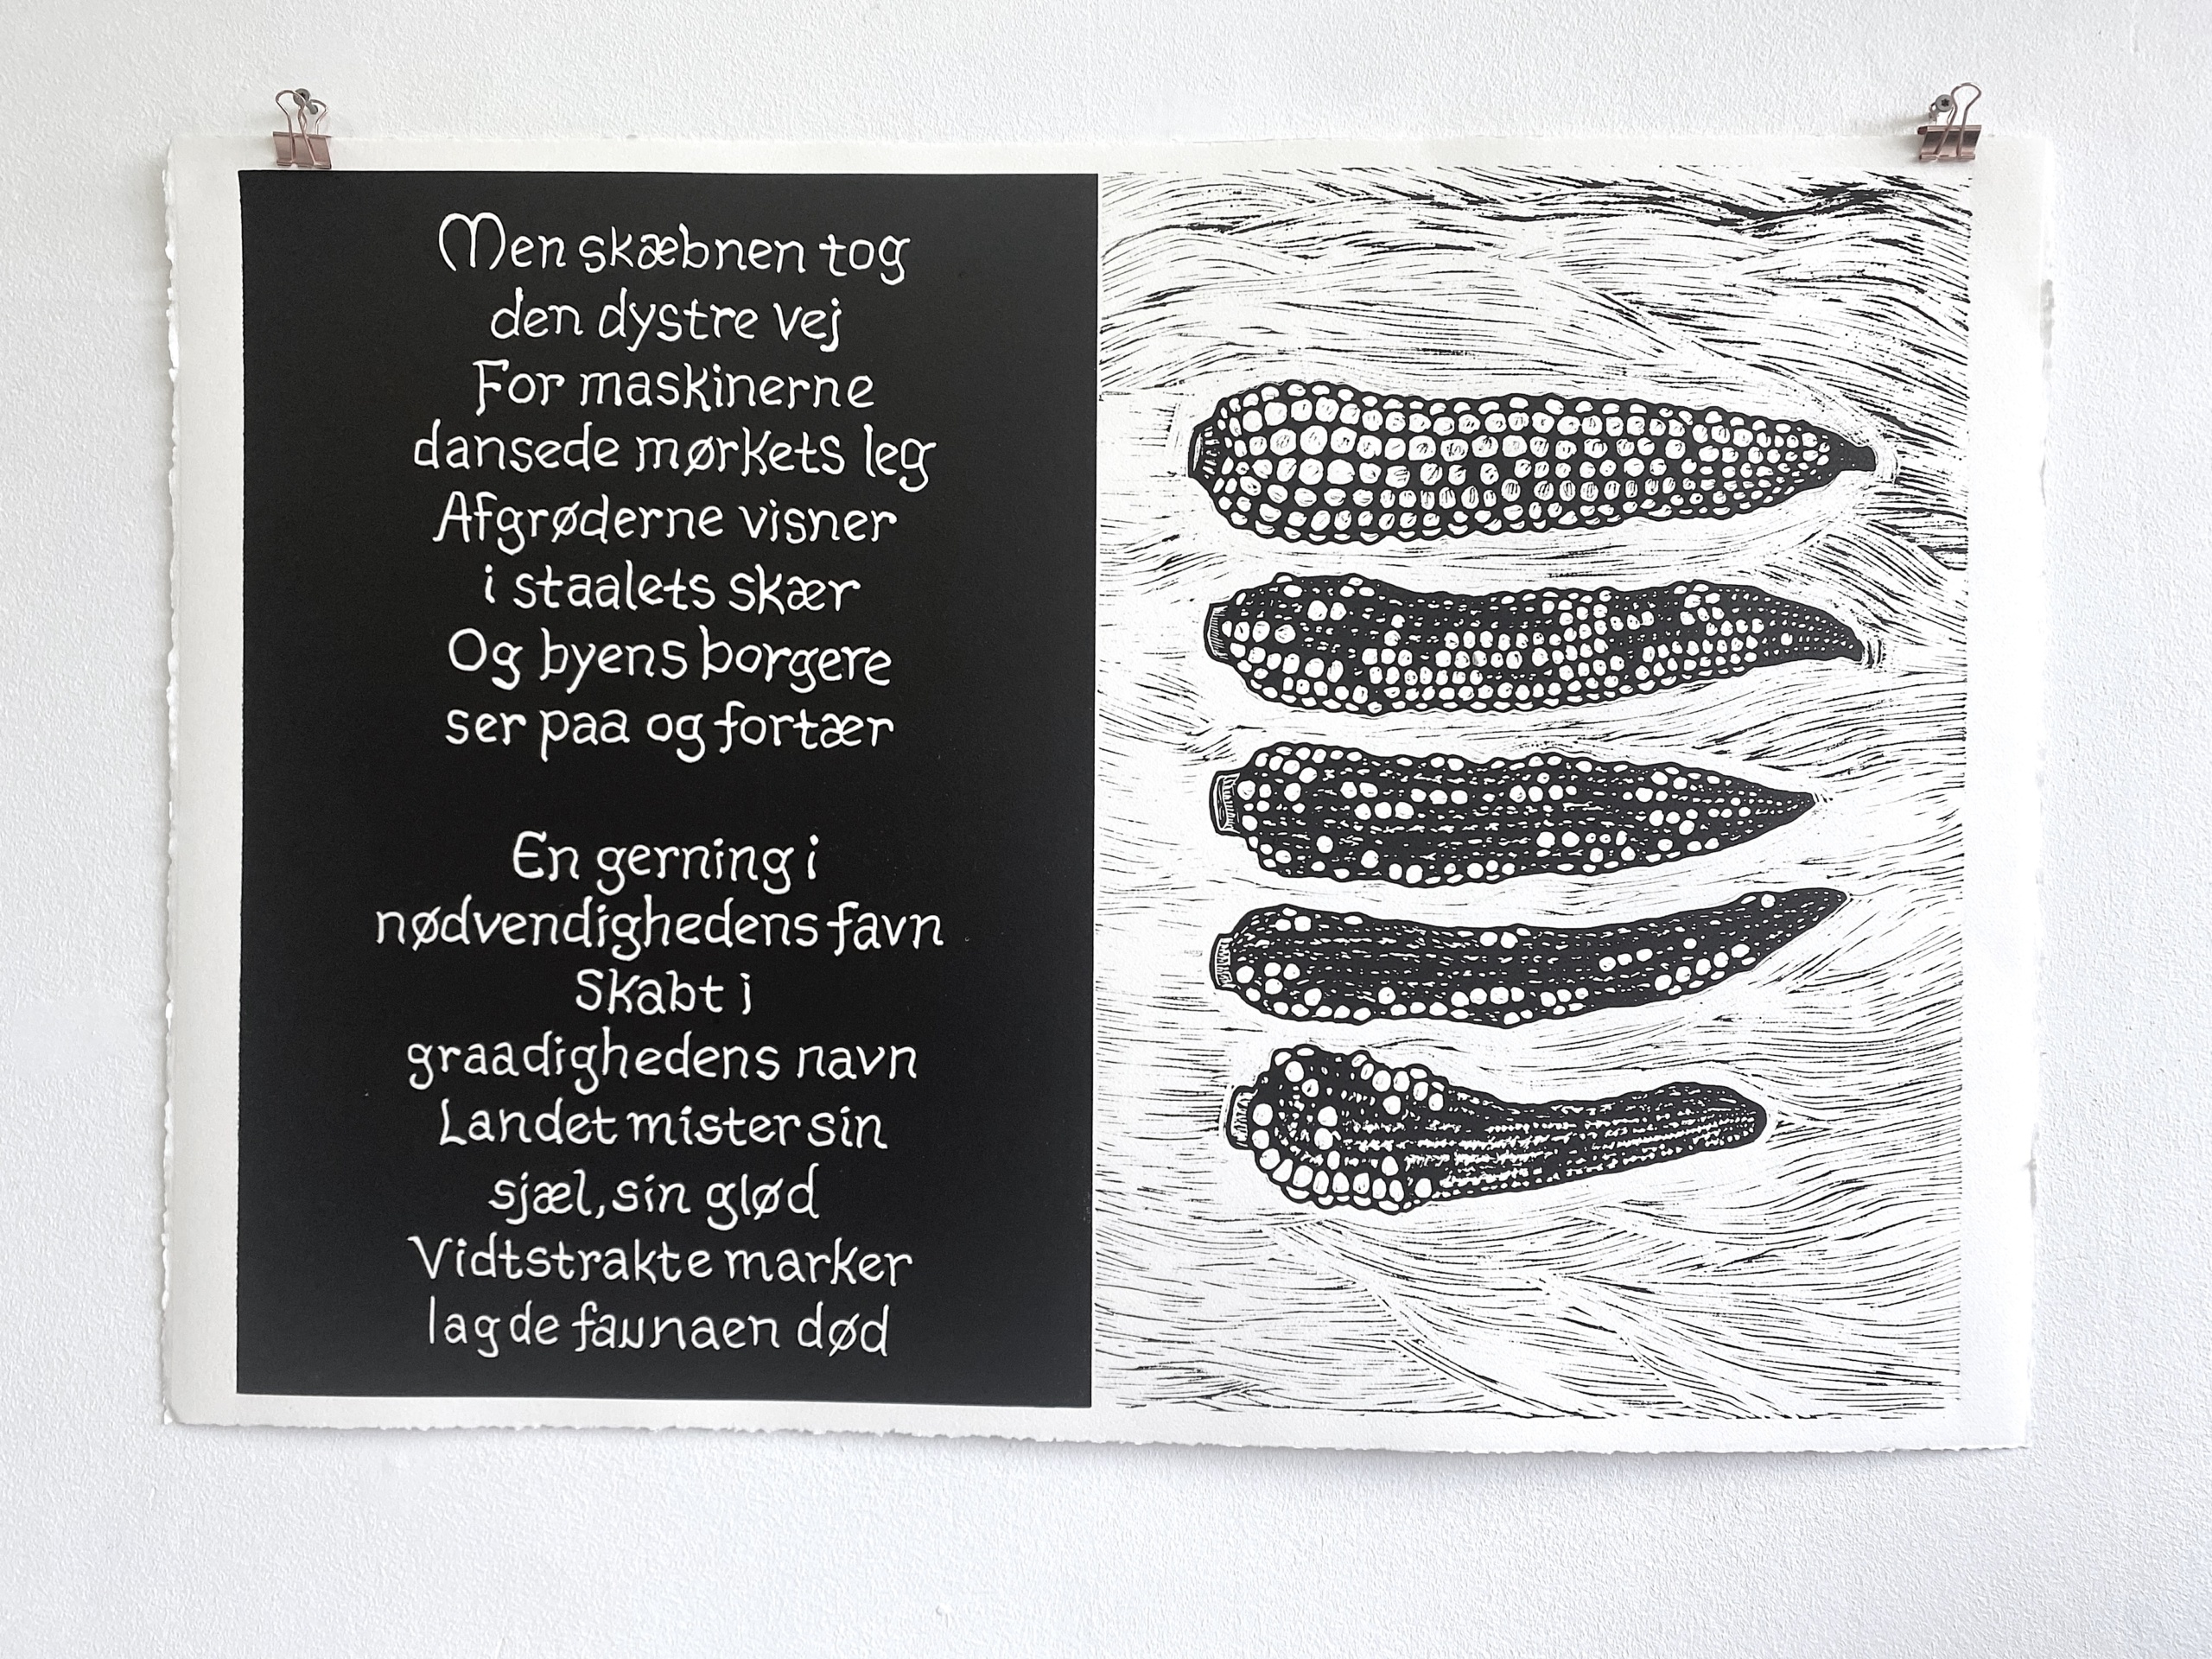 Men skæbnen tog
den dystre vej
For maskinerne
dansede mørkets leg
Afgrøderne visner
i staalets skær
Og byens borgere
ser paa og fortær

En gerning i
nødvendighedens favn
Skabt i
graadighedens navn
Landet mister sin
sjæl, sin glød
Vidtstrakte marker
lagde faunaen død